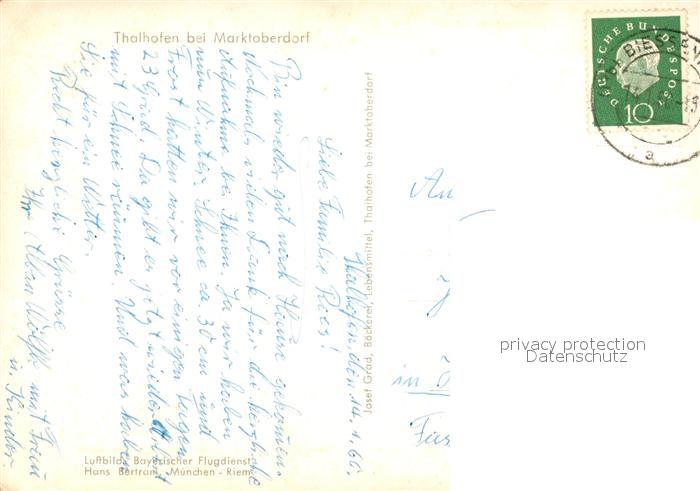 Thalhofen bei Marktoberdorf
Thalhofen, den 14.1.60.
Liebe Familie Rees!
Bin wieder gut nach Hause gekommen.
Nochmals vielen Dank für die herzliche
Aufnahme bei Ihnen. Ja wir haben
nun Winter. Schnee ca. 30 cm und
Frost hatten wir vor einigen Tagen
23 Grad. Da gibt es jetzt wieder Arbeit
mit Schnee räumen. Und was haben
Sie für ein Wetter.
Recht herzliche Grüsse
Ihr Alban Wölfle mit Frau
u. Kinder
Luftbild: Bayerischer Flugdienst
Hans Bertram, München - Riem
Josef Grad, Bäckerei, Lebensmittel, Thalhofen bei Marktoberdorf
DEUTSCHE BUNDESPOST
10
a
An
in
privacy protection
Datenschutz